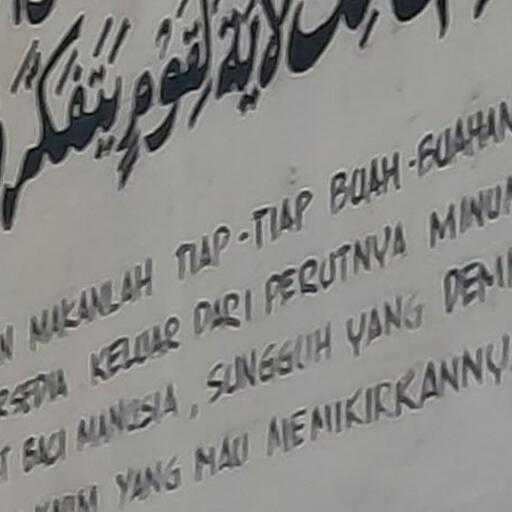 لَآيَةً لِقَوْمٍ يَتَفَكَّرُ
MAKANLAH TIAP-TIAP BUAH-BUAHAN
KELUAR DARI PERUTNYA MINUM
BAGI MANUSIA, SUNGGUH YANG DEMI
KAUM YANG MAU MEMIKIRKANNYA